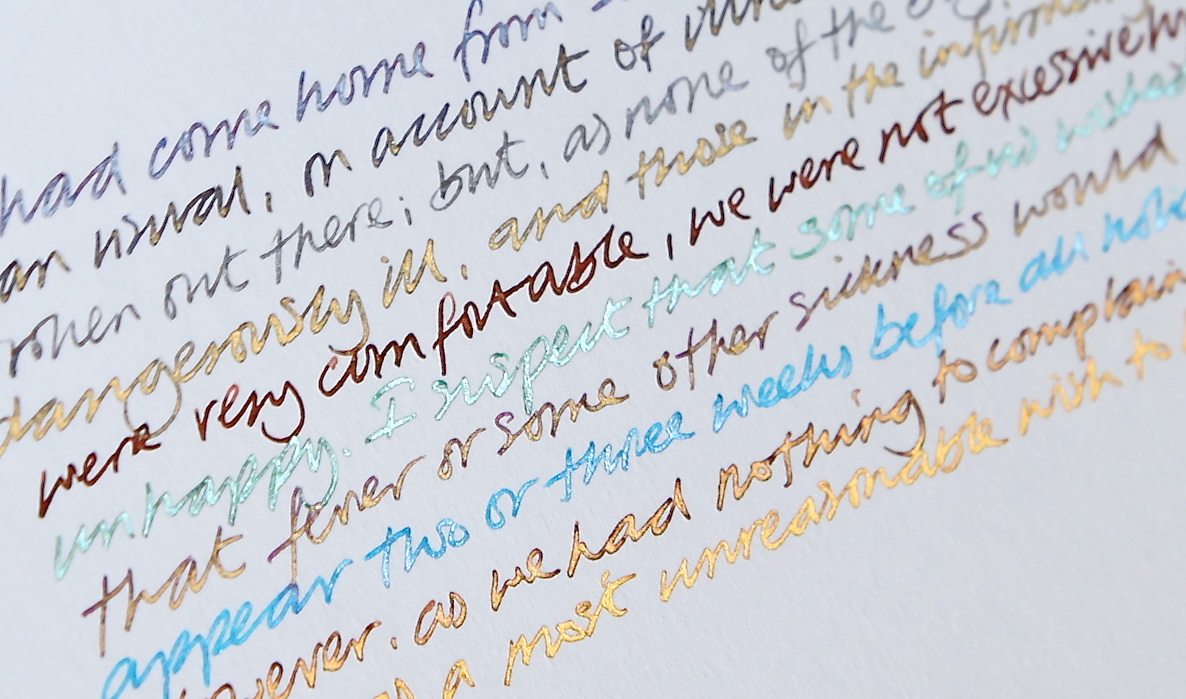 had come home from
an usual, on account of
broken out there; but, as none of the
dangerously ill, and those in the
were very comfortable, we were not excessively
unhappy. I suspect that some of us wished
that fever or some other sickness would
appear two or three weeks before all
however, as we had nothing to complain
a most unreasonable wish to